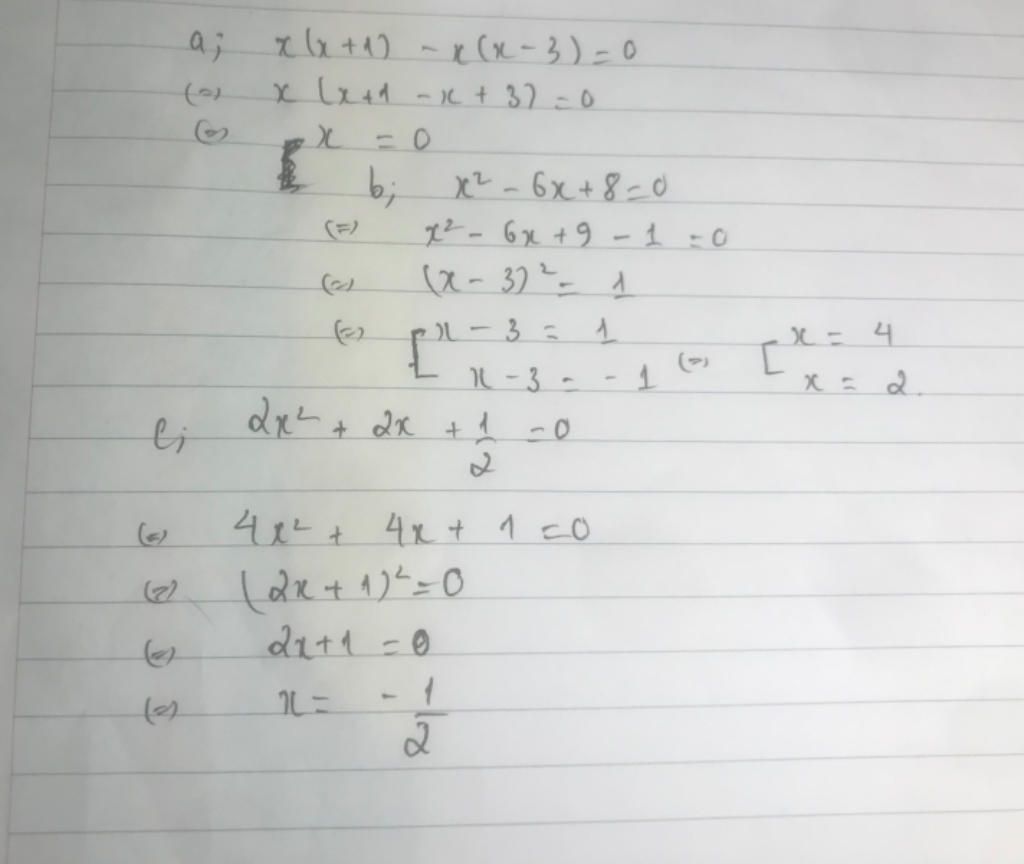 a; x(x+1) - x(x-3) = 0
(=) x(x+1 - x + 3) = 0
(=) x = 0
b; x² - 6x + 8 = 0
(=) x² - 6x + 9 - 1 = 0
(=) (x - 3)² = 1
(=) [ x - 3 = 1
x - 3 = -1 (=) [ x = 4
x = 2.
c; 2x² + 2x + 1/2 = 0
(=) 4x² + 4x + 1 = 0
(=) (2x + 1)² = 0
(=) 2x + 1 = 0
(=) x = - 1/2